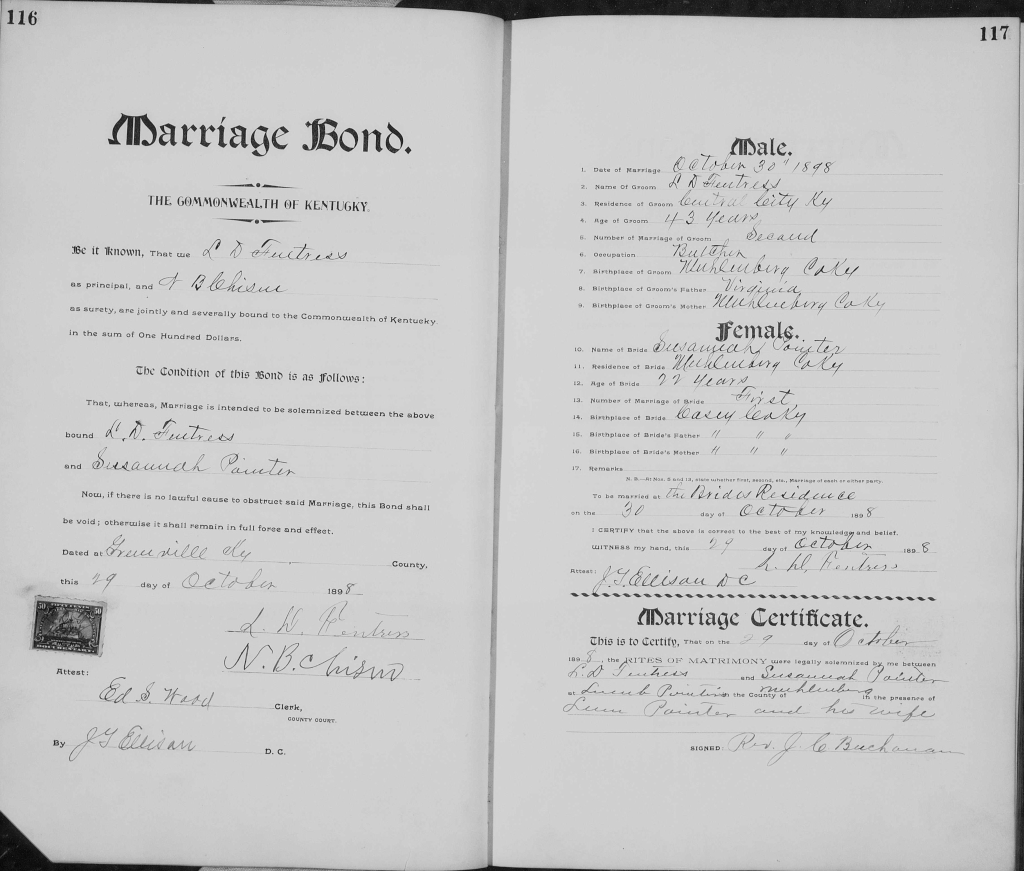 116
Marriage Bond.
THE COMMONWEALTH OF KENTUCKY.
Be it Known, That we L D Fentress
as principal, and N B Chism
as surety, are jointly and severally bound to the Commonwealth of Kentucky
in the sum of One Hundred Dollars.
The Condition of this Bond is as Follows:
That, whereas, Marriage is intended to be solemnized between the above
bound L. D. Fentress
and Susannah Pointer
Now, if there is no lawful cause to obstruct said Marriage, this Bond shall
be void; otherwise it shall remain in full force and effect.
Dated at Greenville Ky County,
this 29 day of October 1898
L. D. Fentress
N. B. Chism
50 50
Attest:
Ed S. Wood Clerk,
COUNTY COURT.
By J T Ellison D. C.
117
Male.
1. Date of Marriage October 30" 1898
2. Name Of Groom L D Fentress
3. Residence of Groom Central City Ky
4. Age of Groom 43 Years
5. Number of Marriage of Groom Second
6. Occupation Butcher
7. Birthplace of Groom Muhlenberg Co Ky
8. Birthplace of Groom's Father Virginia
9. Birthplace of Groom's Mother Muhlenberg Co Ky
Female.
10. Name of Bride Susannah Pointer
11. Residence of Bride Muhlenberg Co Ky
12. Age of Bride 22 Years
13. Number of Marriage of Bride First
14. Birthplace of Bride Casey Co Ky
15. Birthplace of Bride's Father " " "
16. Birthplace of Bride's Mother " " "
17. Remarks
N. B.—At Nos. 5 and 13, state whether first, second, etc., Marriage of each or either party.
To be married at the Brides Residence
on the 30 day of October 1898
I CERTIFY that the above is correct to the best of my knowledge and belief.
WITNESS my hand, this 29 day of October 1898
L. D. Fentress
Attest: J. T. Ellison D C
Marriage Certificate.
This is to Certify, That on the 29 day of October
1898, the RITES OF MATRIMONY were legally solemnized by me between
L. D Fentress and Susannah Pointer
at Pointers in the County of Muhlenberg in the presence of
Pointer and his wife
SIGNED: Rev. J. C Buchanan